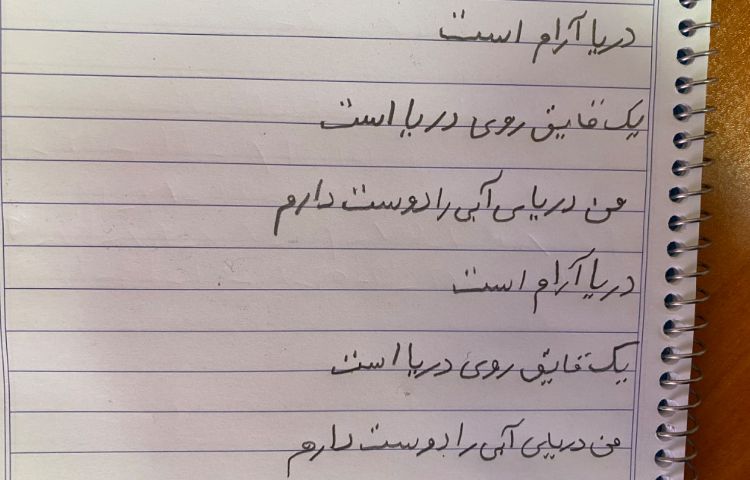 دریا آرام است
یک قایق روی دریا است
من دریای آبی را دوست دارم
دریا آرام است
یک قایق روی دریا است
من دریای آبی را دوست دارم